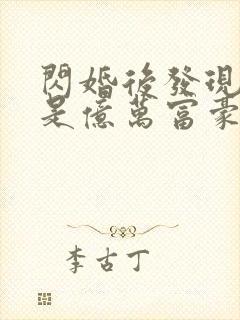 閃婚後發現
是億萬富豪
李古丁